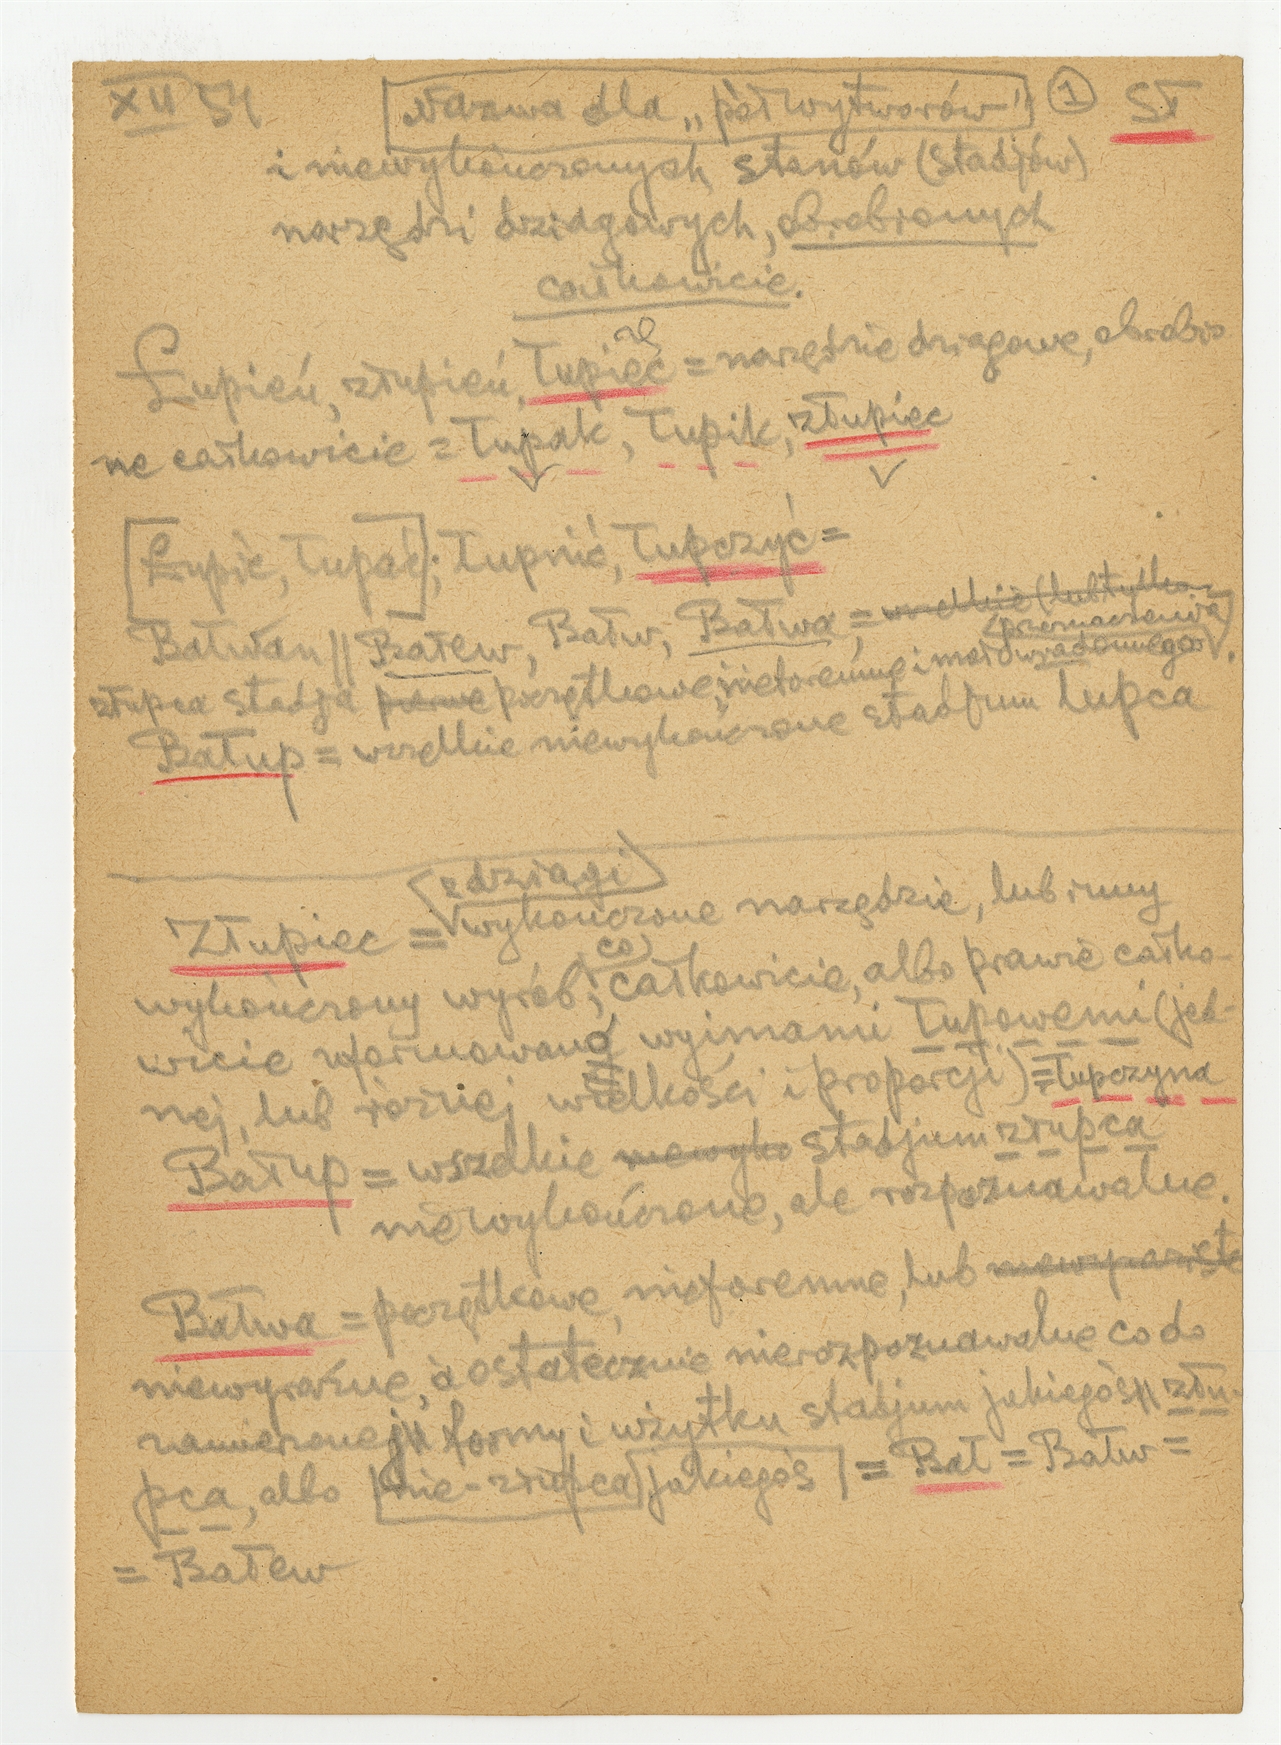 XII 54 [Nazwa dla „półwytworów”] ① SŁ
i niewykończonych stanów (stadjów)
narzędzi dziagowych, obrobionych
całkowicie.
Łupień, złupień, łupiec = narzędzie dziagowe, obrobio
ne całkowicie = łupak, łupik, złupiec
[Łupić, łupać]; łupnić, łupczyć =
Bałwan || Bałew, Bałw, Bałwa = wszelkie (lub tylko
(przeznaczenia)
złupca stadja pocżątkowe, nieforemne i mało wiadomego.
Bałup = wszelkie niewykończone stadjum łupca
z dziagi
Złupiec = wykończone narzędzie, lub inny
co
wykończony wyrób, całkowicie, albo prawie całko-
wicie uformowany wyimami łupowemi (jed-
nej, lub różnej wielkości i proporcji) = łupczyna
Bałup = wszelkie niewyko stadjum złupca
niewykończone, ale rozpoznawalne.
Bałwa = początkowe, nieforemne, lub
niewyraźne, a ostatecznie nierozpoznawalne co do
zamierzonej formy i użytku stadjum jakiegoś złu-
pca, albo [nie-złupca jakiegoś] = Bał = Bałw =
= Bałew